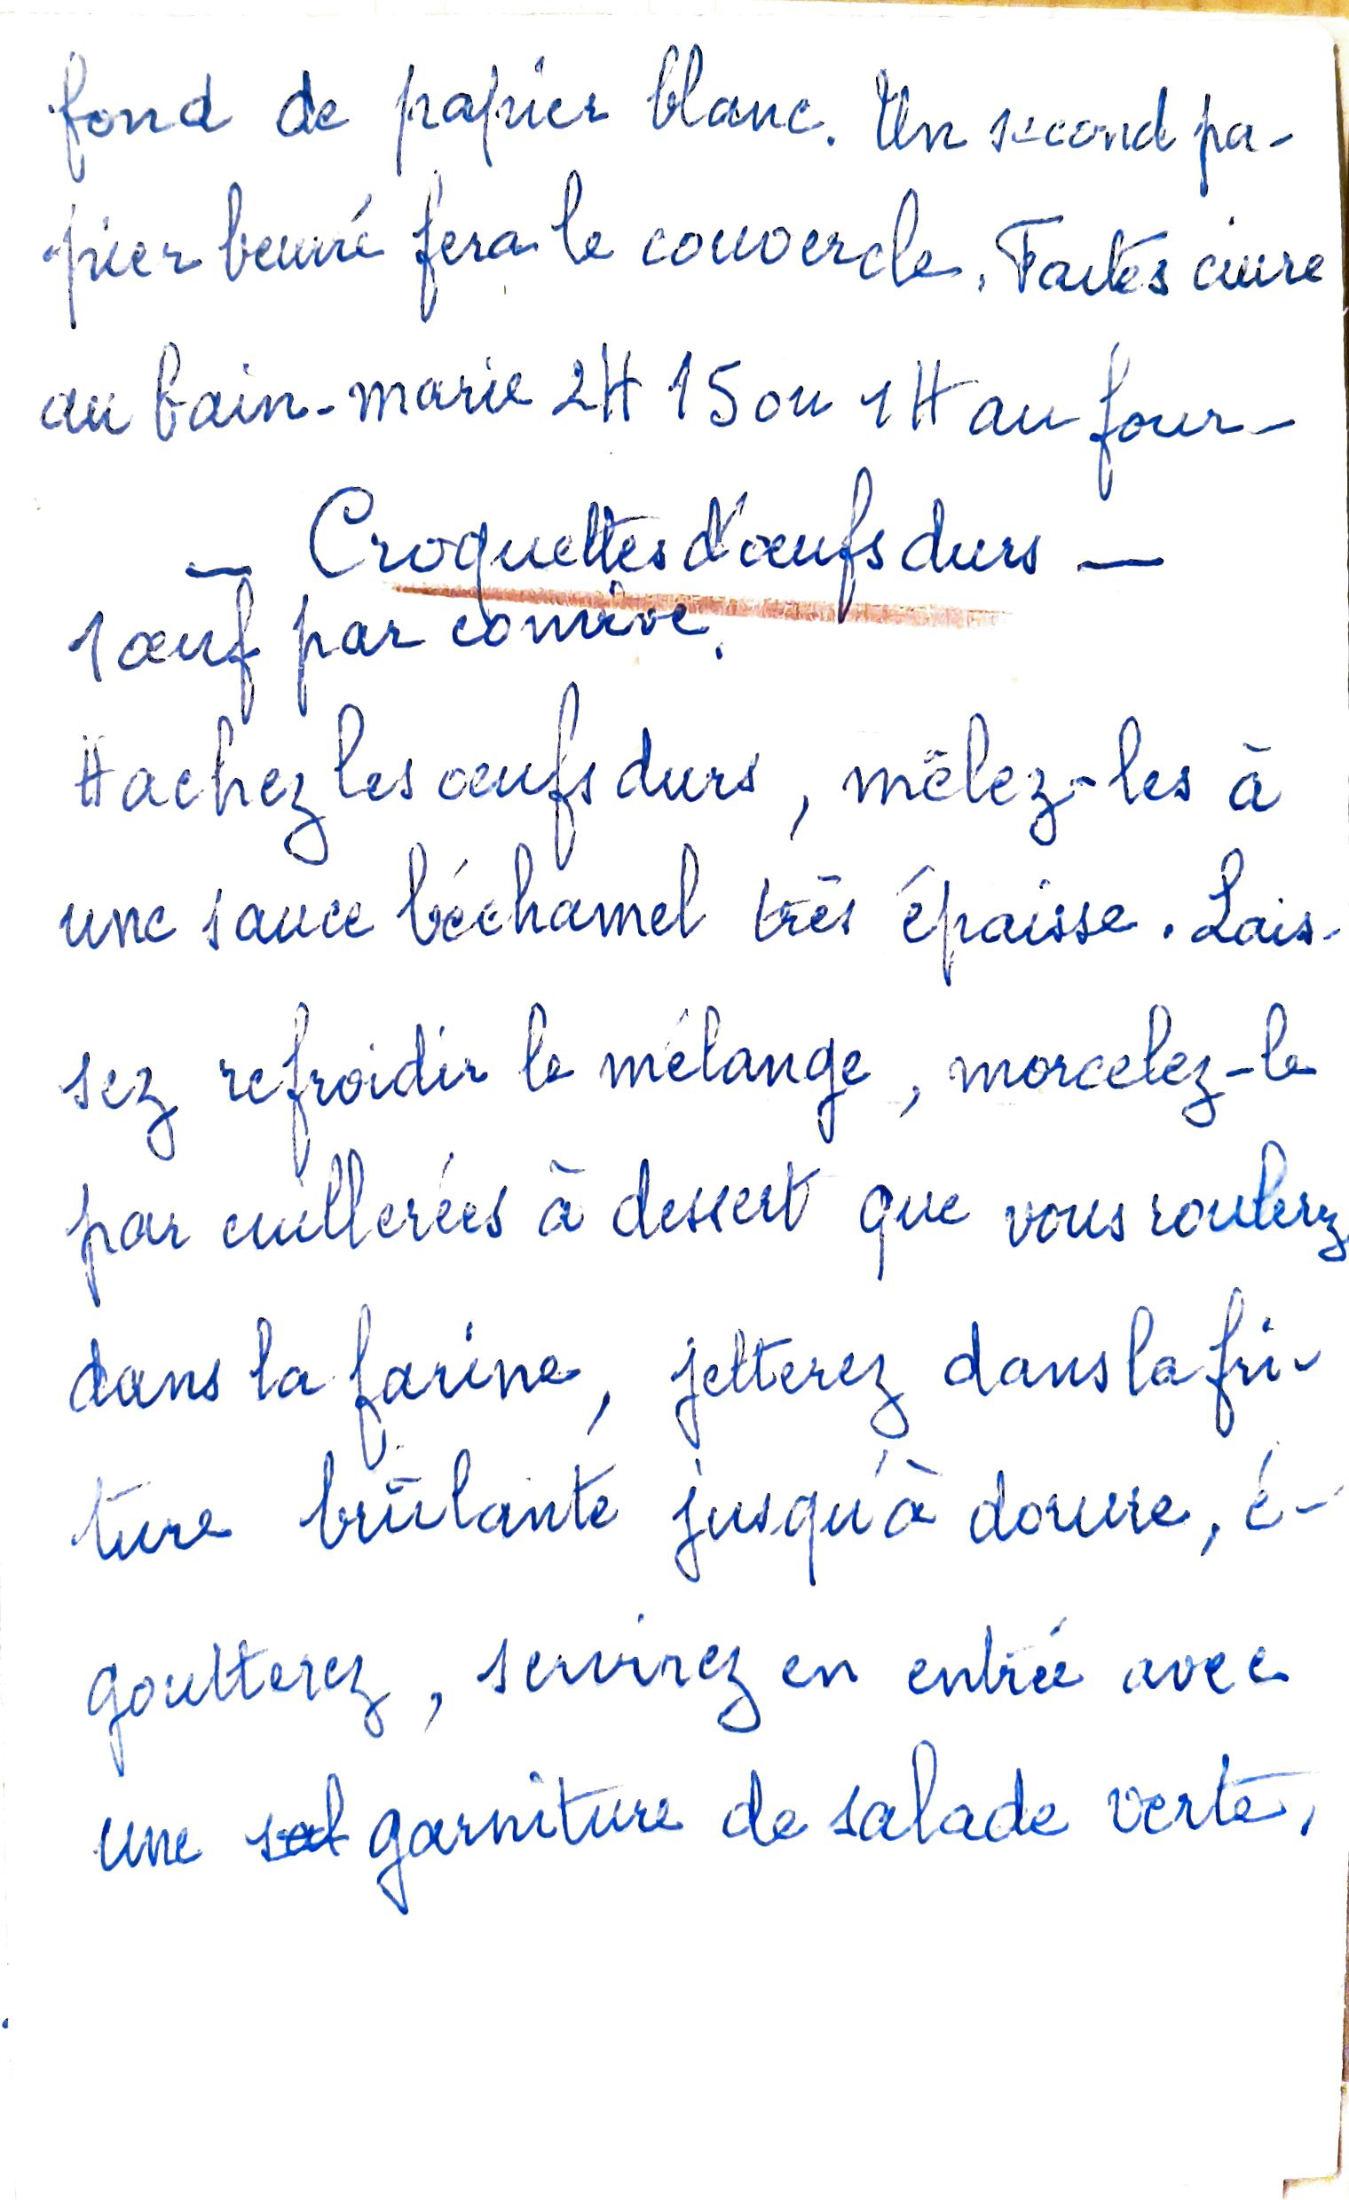 fond de papier blanc. Un second pa-
pier beurré fera le couvercle. Faites cuire
au bain-marie 2H 15 ou 1H au four-
— Croquettes d'œufs durs —
1 œuf par convive.
Hachez les œufs durs, mêlez-les à
une sauce béchamel très épaisse. Lais-
sez refroidir le mélange, morcelez-le
par cuillerées à dessert que vous roulerez
dans la farine, jetterez dans la fri-
ture brûlante jusqu'à dorure, é-
goutterez, servirez en entrée avec
une sal garniture de salade verte,